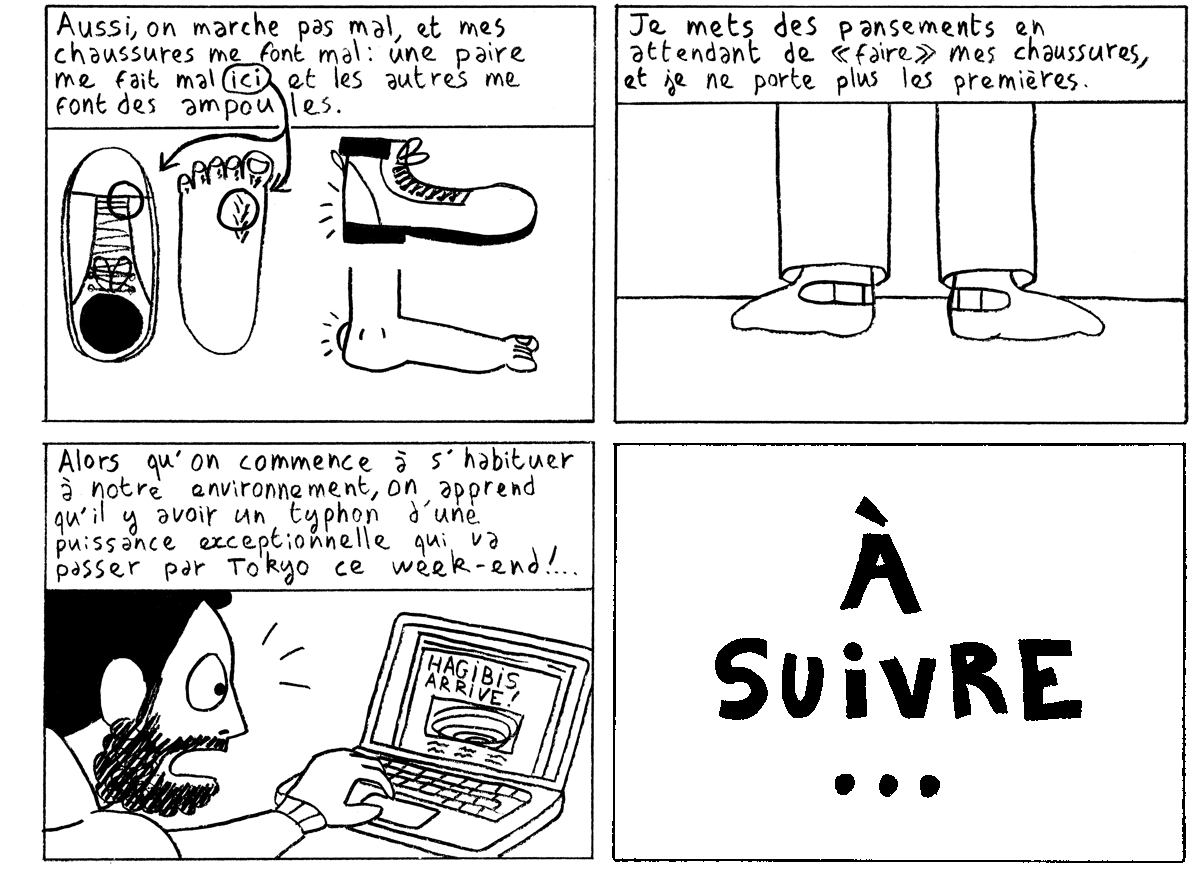 Aussi, on marche pas mal, et mes
chaussures me font mal : une paire
me fait mal ici et les autres me
font des ampoules.
Je mets des pansements en
attendant de «faire» mes chaussures,
et je ne porte plus les premières.
Alors qu'on commence à s'habituer
à notre environnement, on apprend
qu'il y avoir un typhon d'une
puissance exceptionnelle qui va
passer par Tokyo ce week-end!...
HAGIBIS
ARRIVE!
À
SUiVRE
...